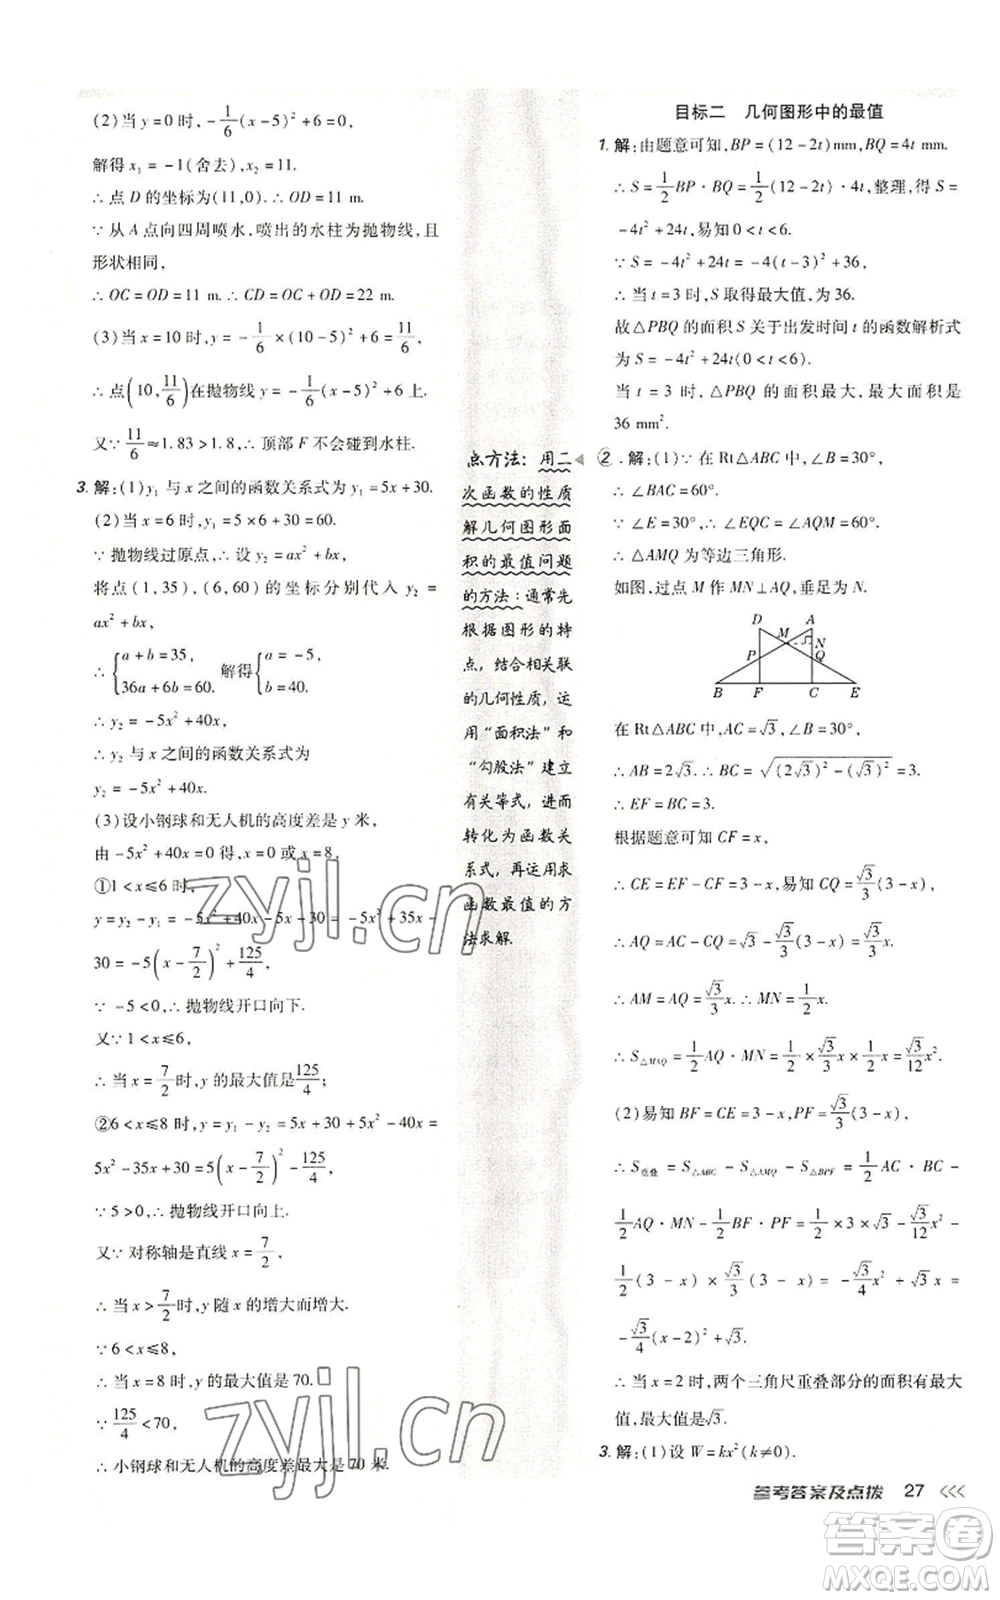 (2)当 y=0 时,-1/6(x-5)²+6=0,
解得 x₁=-1(舍去),x₂=11.
∴点 D 的坐标为(11,0).∴OD=11 m.
∵从 A 点向四周喷水,喷出的水柱为抛物线,且
形状相同,
∴OC=OD=11 m.∴CD=OC+OD=22 m.
(3)当 x=10 时,y=-1/6×(10-5)²+6=11/6,
∴点(10,11/6)在抛物线 y=-1/6(x-5)²+6上.
又∵11/6≈1.83>1.8,∴顶部 F 不会碰到水柱.
3.解:(1)y₁ 与 x 之间的函数关系式为 y₁=5x+30.
(2)当 x=6 时,y₁=5×6+30=60.
∵抛物线过原点,∴设 y₂=ax²+bx,
将点(1,35),(6,60)的坐标分别代入 y₂=
ax²+bx,
∴{a+b=35, 36a+6b=60. 解得{a=-5, b=40.
∴y₂=-5x²+40x.
∴y₂ 与 x 之间的函数关系式为
y₂=-5x²+40x.
(3)设小钢球和无人机的高度差是 y 米,
由-5x²+40x=0 得,x=0或 x=8.
①1<x≤6 时,
y=y₂-y₁=-5x²+40x-5x-30=-5x²+35x-
30=-5(x-7/2)²+125/4,
∵-5<0,∴抛物线开口向下.
又∵1<x≤6,
∴当 x=7/2时,y 的最大值是125/4;
②6<x≤8 时,y=y₁-y₂=5x+30+5x²-40x=
5x²-35x+30=5(x-7/2)²-125/4,
∵5>0,∴抛物线开口向上.
又∵对称轴是直线 x=7/2,
∴当 x>7/2时,y 随 x 的增大而增大.
∵6<x≤8,
∴当 x=8 时,y 的最大值是 70.
∵125/4<70,
∴小钢球和无人机的高度差最大是 70 米.
点方法:用二
次函数的性质
解几何图形面
积的最值问题
的方法:通常先
根据图形的特
点,结合相关联
的几何性质,运
用“面积法”和
“勾股法”建立
有关等式,进而
转化为函数关
系式,再运用求
函数最值的方
法求解.
目标二 几何图形中的最值
1.解:由题意可知,BP=(12-2t)mm,BQ=4t mm.
∴S=1/2BP·BQ=1/2(12-2t)·4t,整理,得 S=
-4t²+24t,易知 0<t<6.
∵S=-4t²+24t=-4(t-3)²+36,
∴当 t=3 时,S 取得最大值,为 36.
故△PBQ 的面积 S 关于出发时间 t 的函数解析式
为 S=-4t²+24t(0<t<6).
当 t=3 时,△PBQ 的面积最大,最大面积是
36 mm².
2.解:(1)∵在 Rt△ABC 中,∠B=30°,
∴∠BAC=60°.
∵∠E=30°,∴∠EQC=∠AQM=60°.
∴△AMQ 为等边三角形.
如图,过点 M 作 MN⊥AQ,垂足为 N.
D A
M N
P Q
B F C E
在 Rt△ABC 中,AC=√3,∠B=30°,
∴AB=2√3.∴BC=√((2√3)²-(√3)²)=3.
∴EF=BC=3.
根据题意可知 CF=x,
∴CE=EF-CF=3-x,易知 CQ=√3/3(3-x),
∴AQ=AC-CQ=√3-√3/3(3-x)=√3/3x.
∴AM=AQ=√3/3x.∴MN=1/2x.
∴S△MAQ=1/2AQ·MN=1/2×√3/3x×1/2x=√3/12x².
(2)易知 BF=CE=3-x,PF=√3/3(3-x),
∴S重叠=S△ABC-S△AMQ-S△BPF=1/2AC·BC-
1/2AQ·MN-1/2BF·PF=1/2×3×√3-√3/12x²-
1/2(3-x)×√3/3(3-x)=-√3/4x²+√3x=
-√3/4(x-2)²+√3.
∴当 x=2 时,两个三角尺重叠部分的面积有最大
值,最大值是√3.
3.解:(1)设 W=kx²(k≠0).
参考答案及点拨 27
zyjl.cn
zyjl.cn
答案圈
MXQE.COM